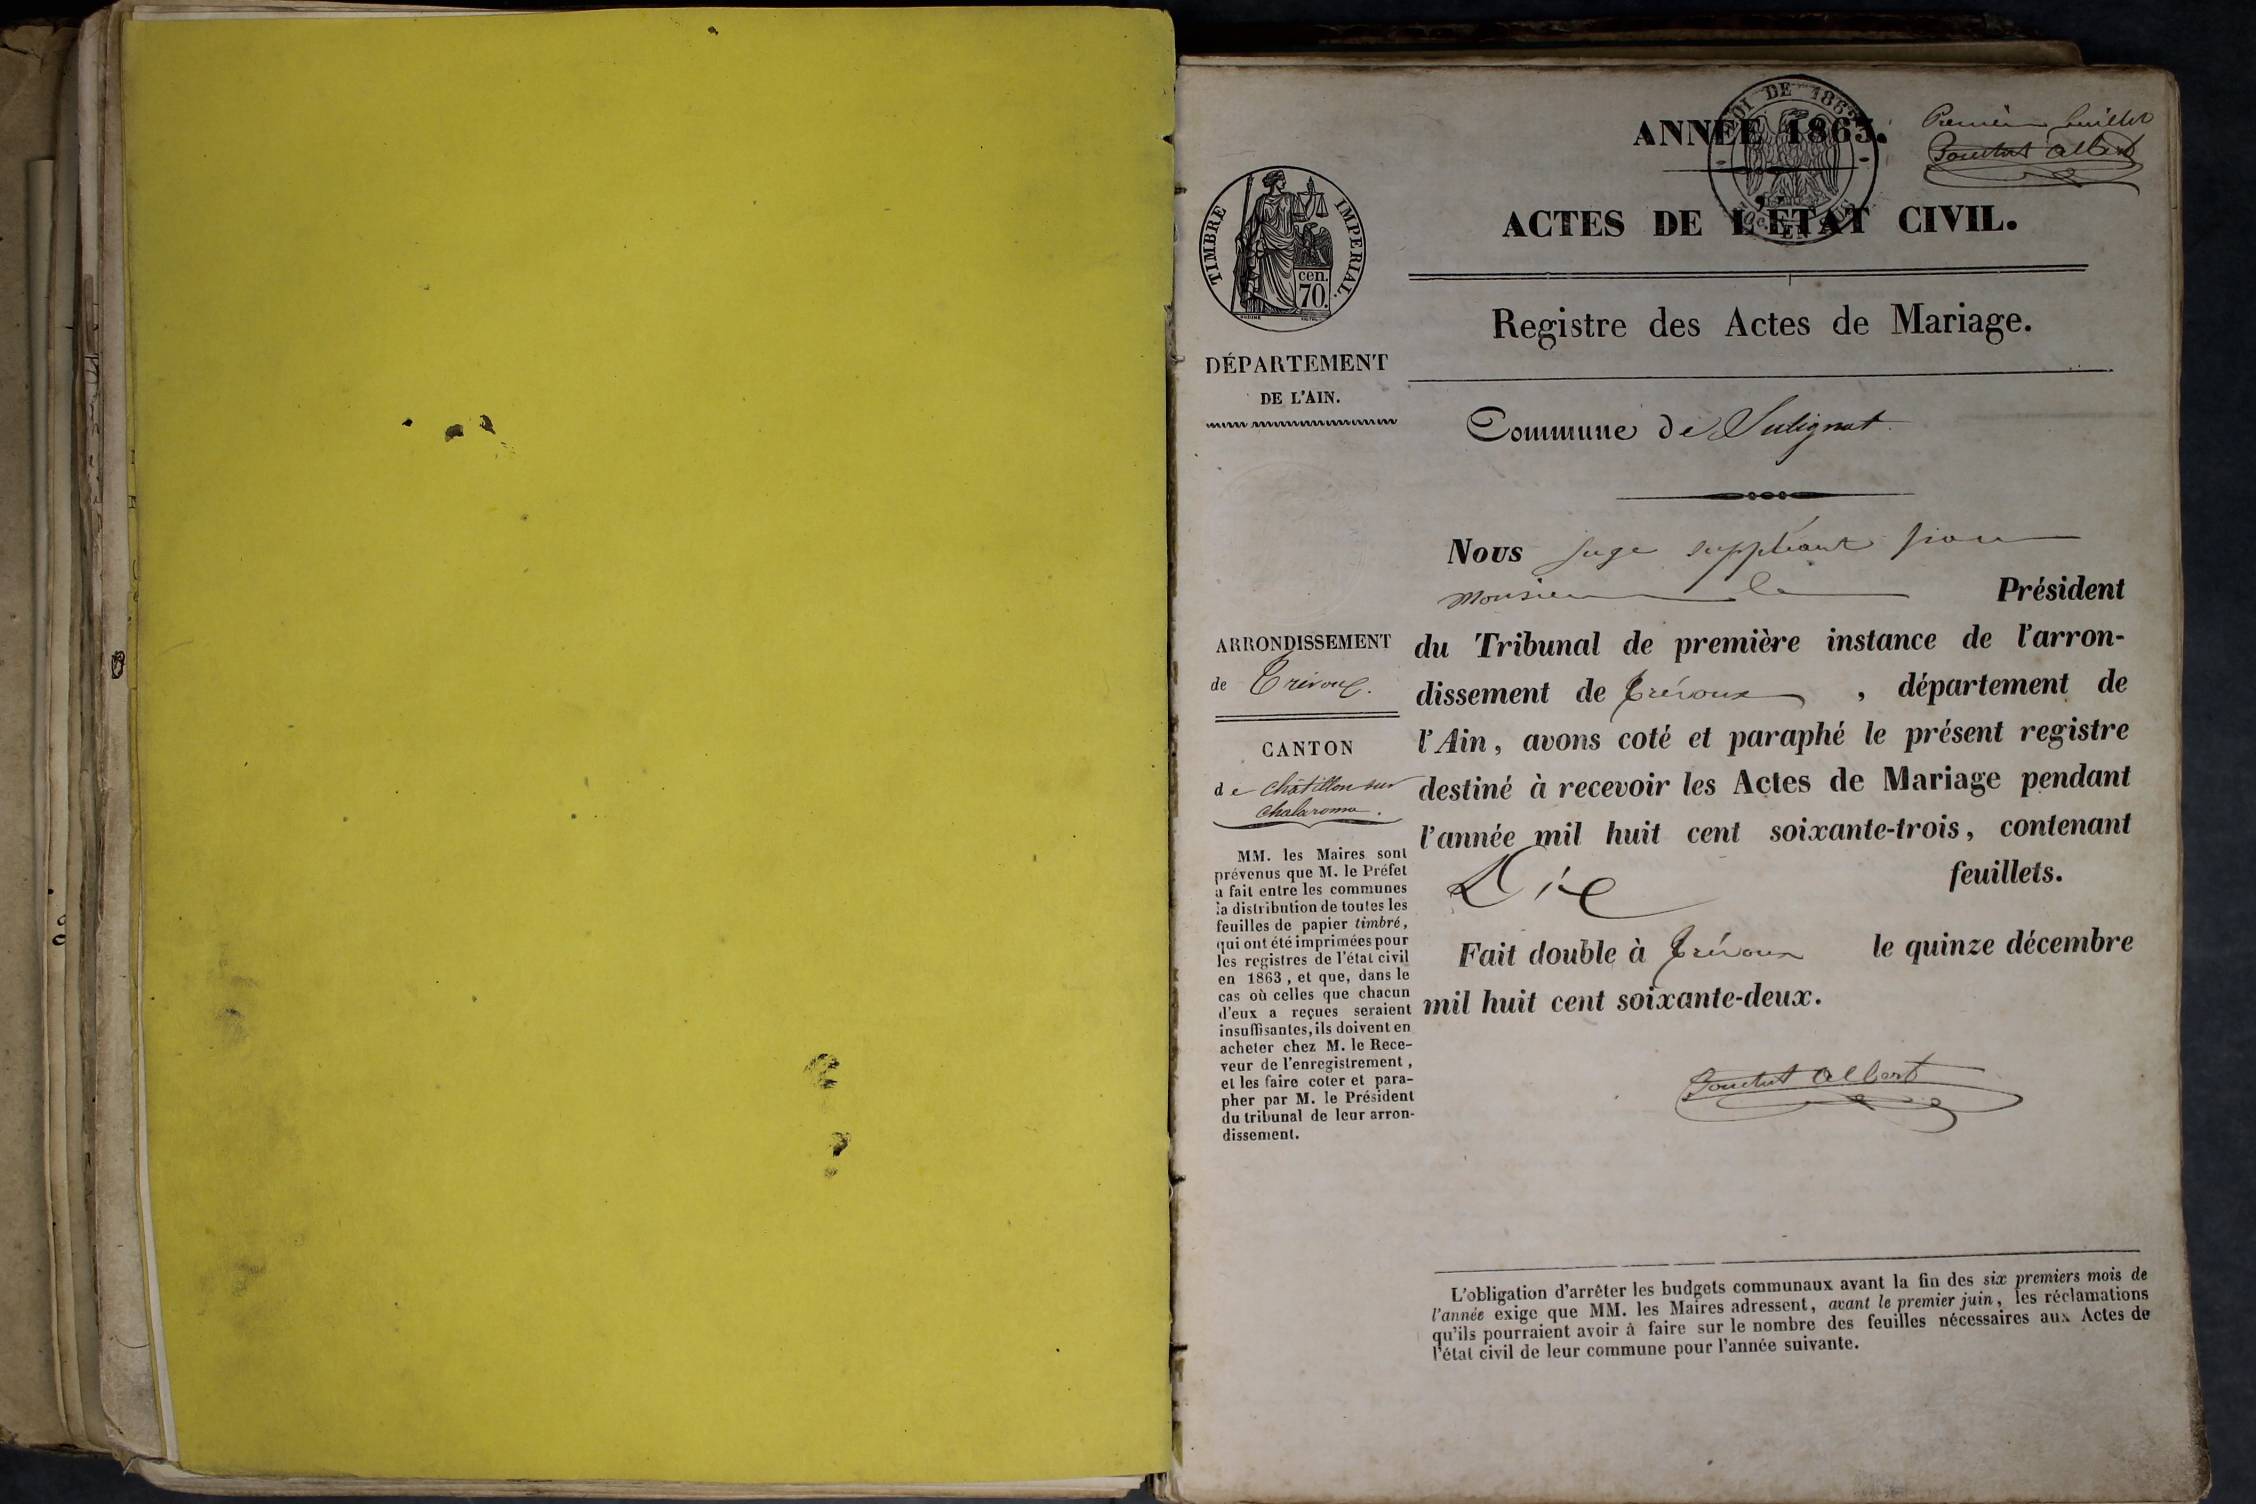 ANNÉE 1863.
LOI DE 1862
Premier feuillet
Bouchut Albert
TIMBRE IMPERIAL.
cen.
70.
ACTES DE L'ÉTAT CIVIL.
Registre des Actes de Mariage.
DÉPARTEMENT
DE L'AIN.
Commune de Sulignat.
Nous juge suppléant pour
monsieur le Président
du Tribunal de première instance de l'arron-
dissement de Trévoux, département de
l'Ain, avons coté et paraphé le présent registre
destiné à recevoir les Actes de Mariage pendant
l'année mil huit cent soixante-trois, contenant
Dix feuillets.
Fait double à Trévoux le quinze décembre
mil huit cent soixante-deux.
Bouchut Albert
ARRONDISSEMENT
de Trévoux.
CANTON
de Châtillon sur
Chalaronne.
MM. les Maires sont
prévenus que M. le Préfet
a fait entre les communes
la distribution de toutes les
feuilles de papier timbré,
qui ont été imprimées pour
les registres de l'état civil
en 1863, et que, dans le
cas où celles que chacun
d'eux a reçues seraient
insuffisantes, ils doivent en
acheter chez M. le Rece-
veur de l'enregistrement,
et les faire coter et para-
pher par M. le Président
du tribunal de leur arron-
dissement.
L'obligation d'arrêter les budgets communaux avant la fin des six premiers mois de
l'année exige que MM. les Maires adressent, avant le premier juin, les réclamations
qu'ils pourraient avoir à faire sur le nombre des feuilles nécessaires aux Actes de
l'état civil de leur commune pour l'année suivante.